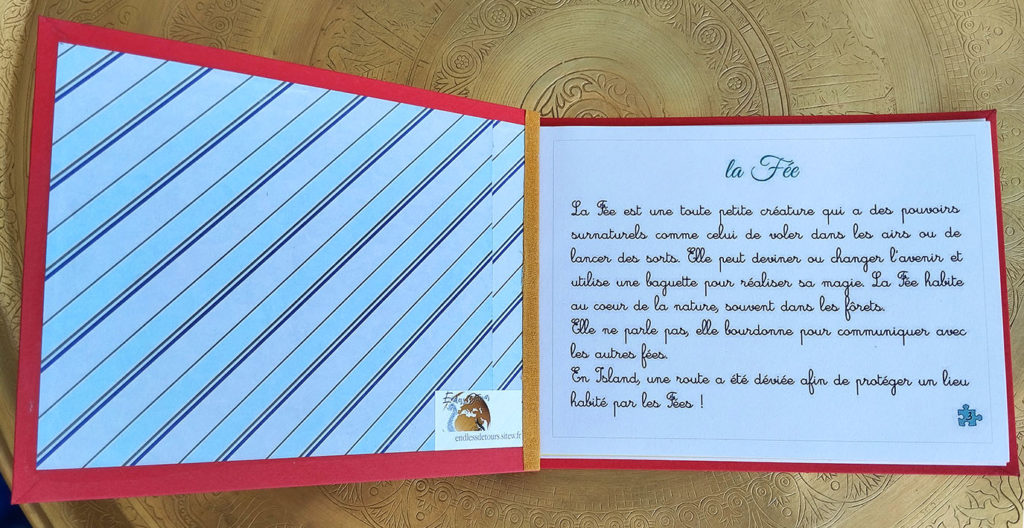 endlessdetours.sitew.fr
la Fée
La Fée est une toute petite créature qui a des pouvoirs
surnaturels comme celui de voler dans les airs ou de
lancer des sorts. Elle peut deviner ou changer l'avenir et
utilise une baguette pour réaliser sa magie. La Fée habite
au coeur de la nature, souvent dans les fôrets.
Elle ne parle pas, elle bourdonne pour communiquer avec
les autres fées.
En Island, une route a été déviée afin de protéger un lieu
habité par les Fées !